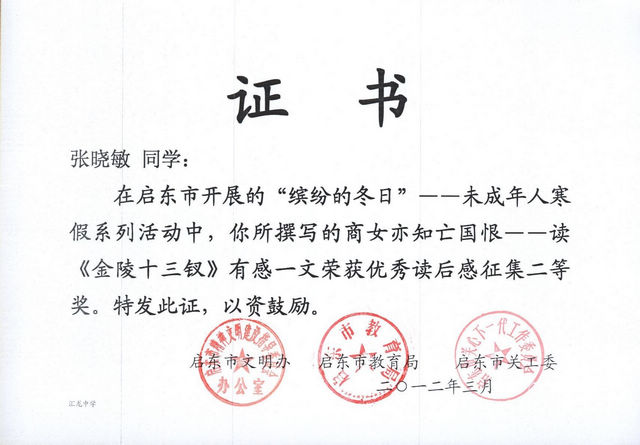 证 书
张晓敏 同学：
在启东市开展的“缤纷的冬日”——未成年人寒
假系列活动中，你所撰写的商女亦知亡国恨——读
《金陵十三钗》有感一文荣获优秀读后感征集二等
奖。特发此证，以资鼓励。
启东市文明办 启东市教育局 启东市关工委
二〇一二年三月
办公室
启东市教育局
汇龙中学